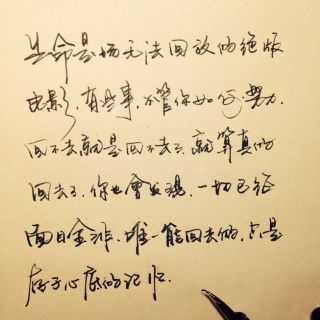 生命是场无法回放的绝版
电影，有些事，不管你如何努力，
回不去就是回不去了，就算真的
回去了，你也會发现，一切已经
面目全非。唯一能回去的，只是
存于心底的记忆。